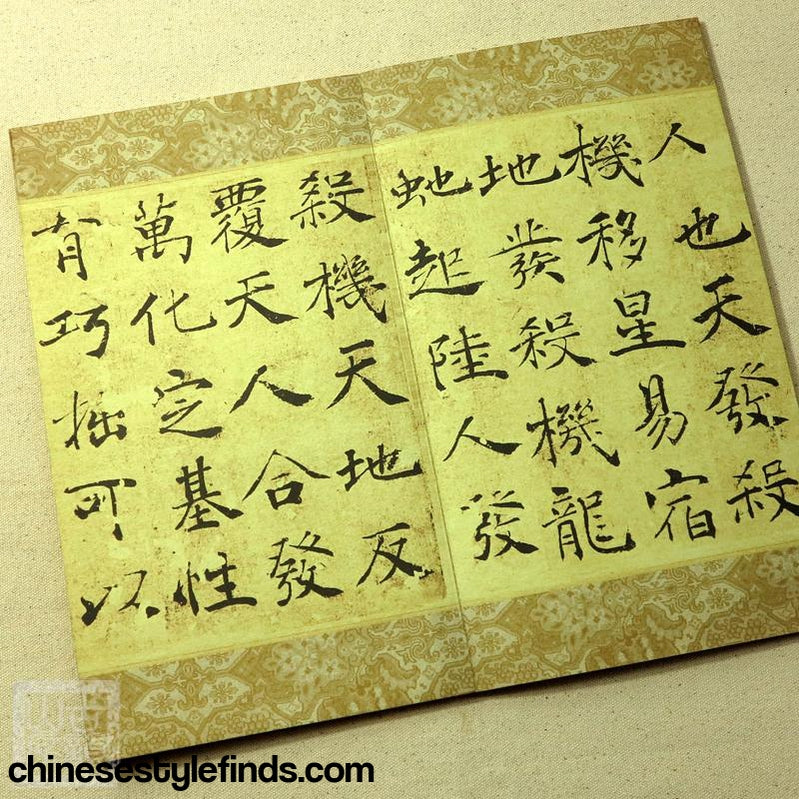 人也天發殺
機移星易宿
地發殺機龍
虵起陸人發
殺機天地反
覆天人合發
萬化定基性
有巧拙可以
chinesestylefinds.com